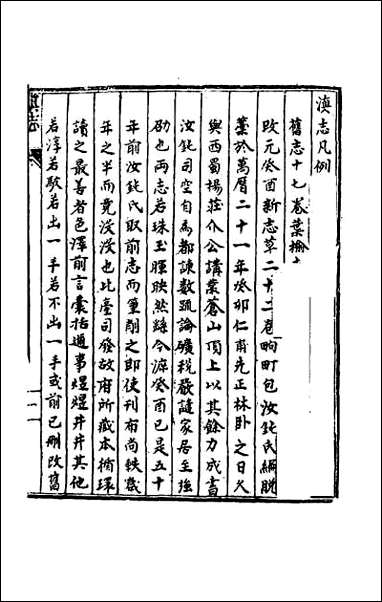 滇志凡例
舊志十七卷葉榆
改元癸酉新志草二十二卷畇町包汝鈍氏綱脫
藁於萬曆二十一年癸卯仁甫先正林卧之日大
與西蜀楊莊介公講業蒼山頂上以其餘力成書
汝鈍司空自為都諫數疏論礦稅嚴譴家居至強
劭也兩志若珠玉暉映然繇今溯癸酉已是五十
年前汝鈍氏取前志而筆削之即使刊布尚軼歲
年之半而竟沒沒也比臺司發故府所藏本循環
讀之最善者色澤前言囊括遍事煜煜井井其他
若淳若駁若出一手若不出一手或前已刪改舊
滇志